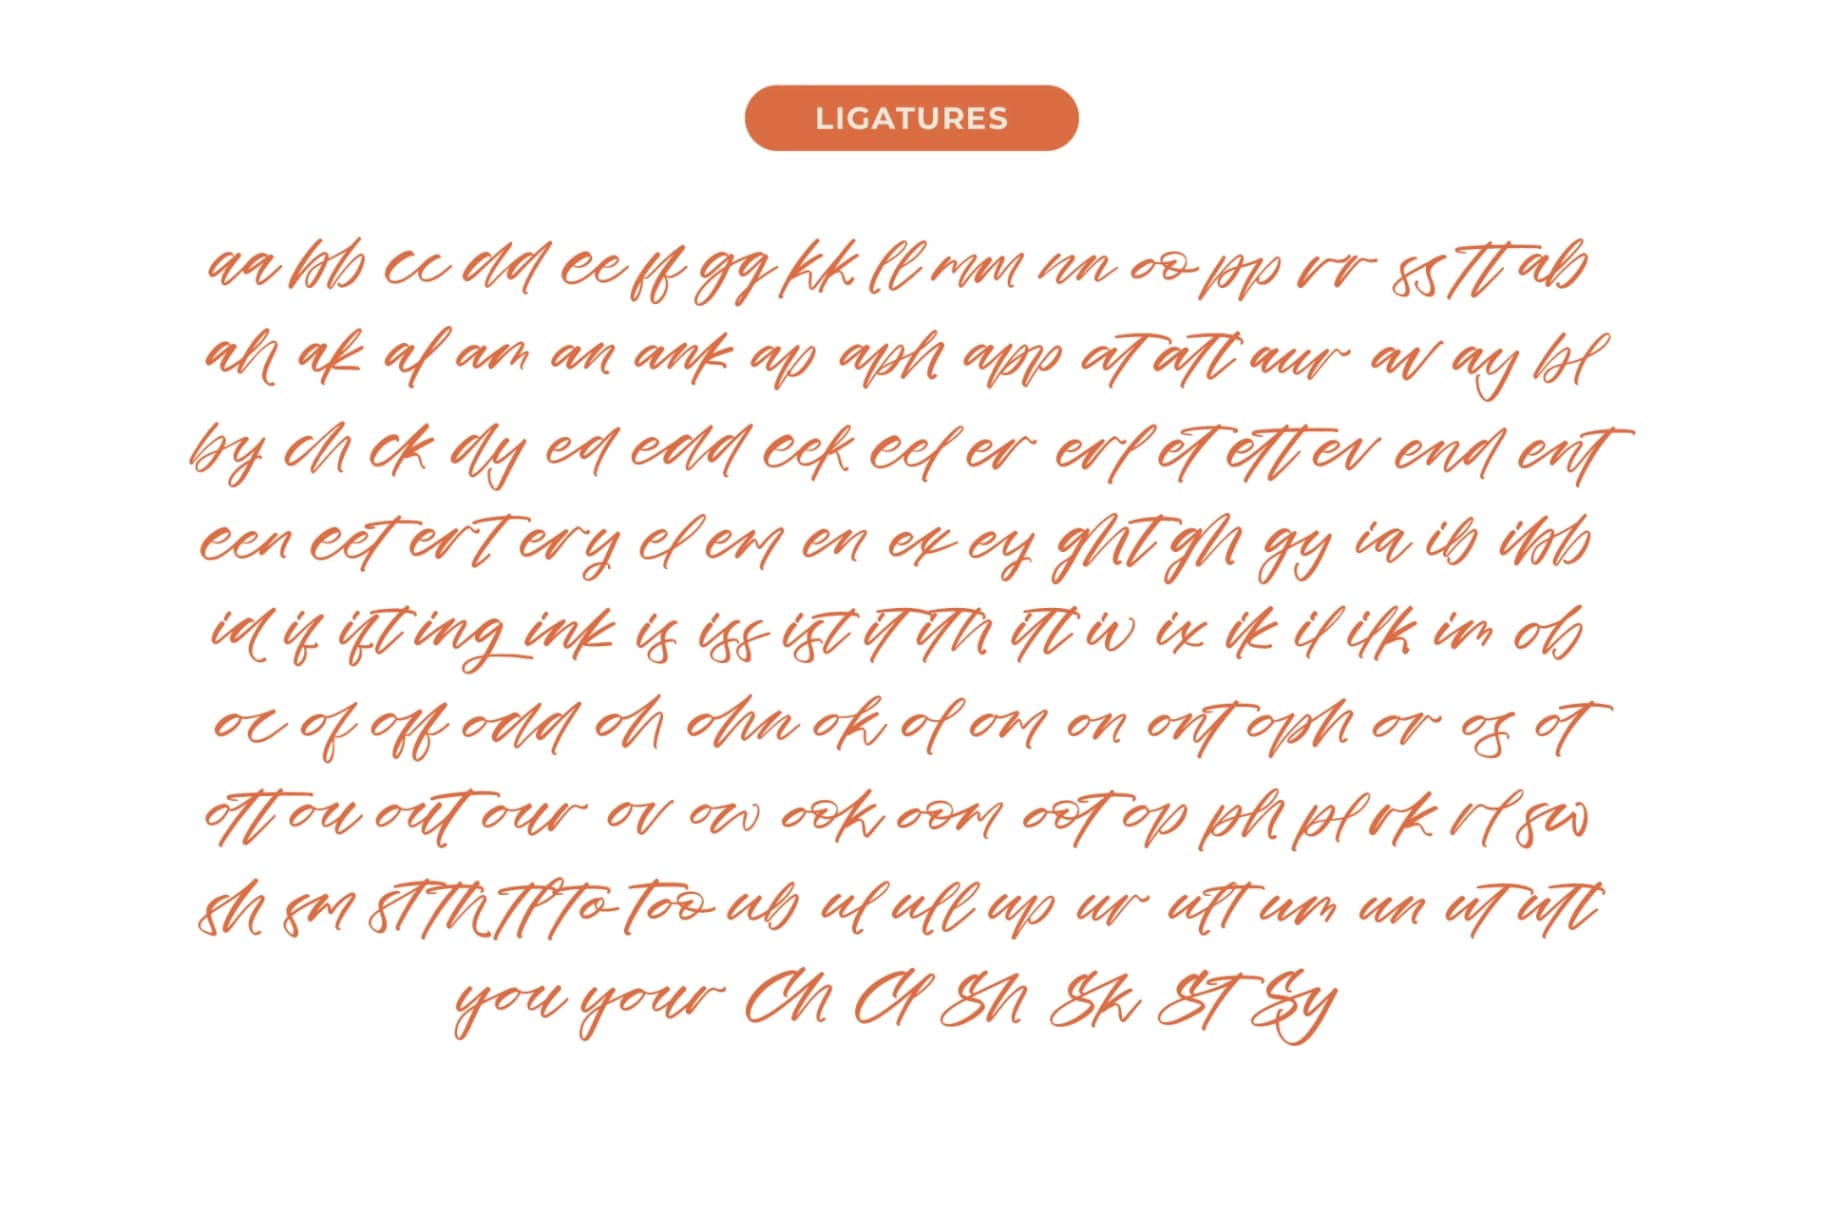 LIGATURES
aa bb cc dd ee ff gg kk ll mm nn oo pp rr ss tt ab
ah ak al am an ank ap aph app at att aur av ay bl
by ch ck dy ed edd eek eel er erl et ett ev end ent
een eet ert ery el em en ex ey ght gh gy ia ib ibb
id if ift ing ink is iss ist it ith itt iv ix ik il ilk im ob
oc of off odd oh ohn ok ol om on ont oph or os ot
ott ou out our ov ow ook oom oot op ph pl rk rl sw
sh sm st th tl to too ub ul ull up ur ult um un ut utt
you your Ch Cl Sh Sk St Sy